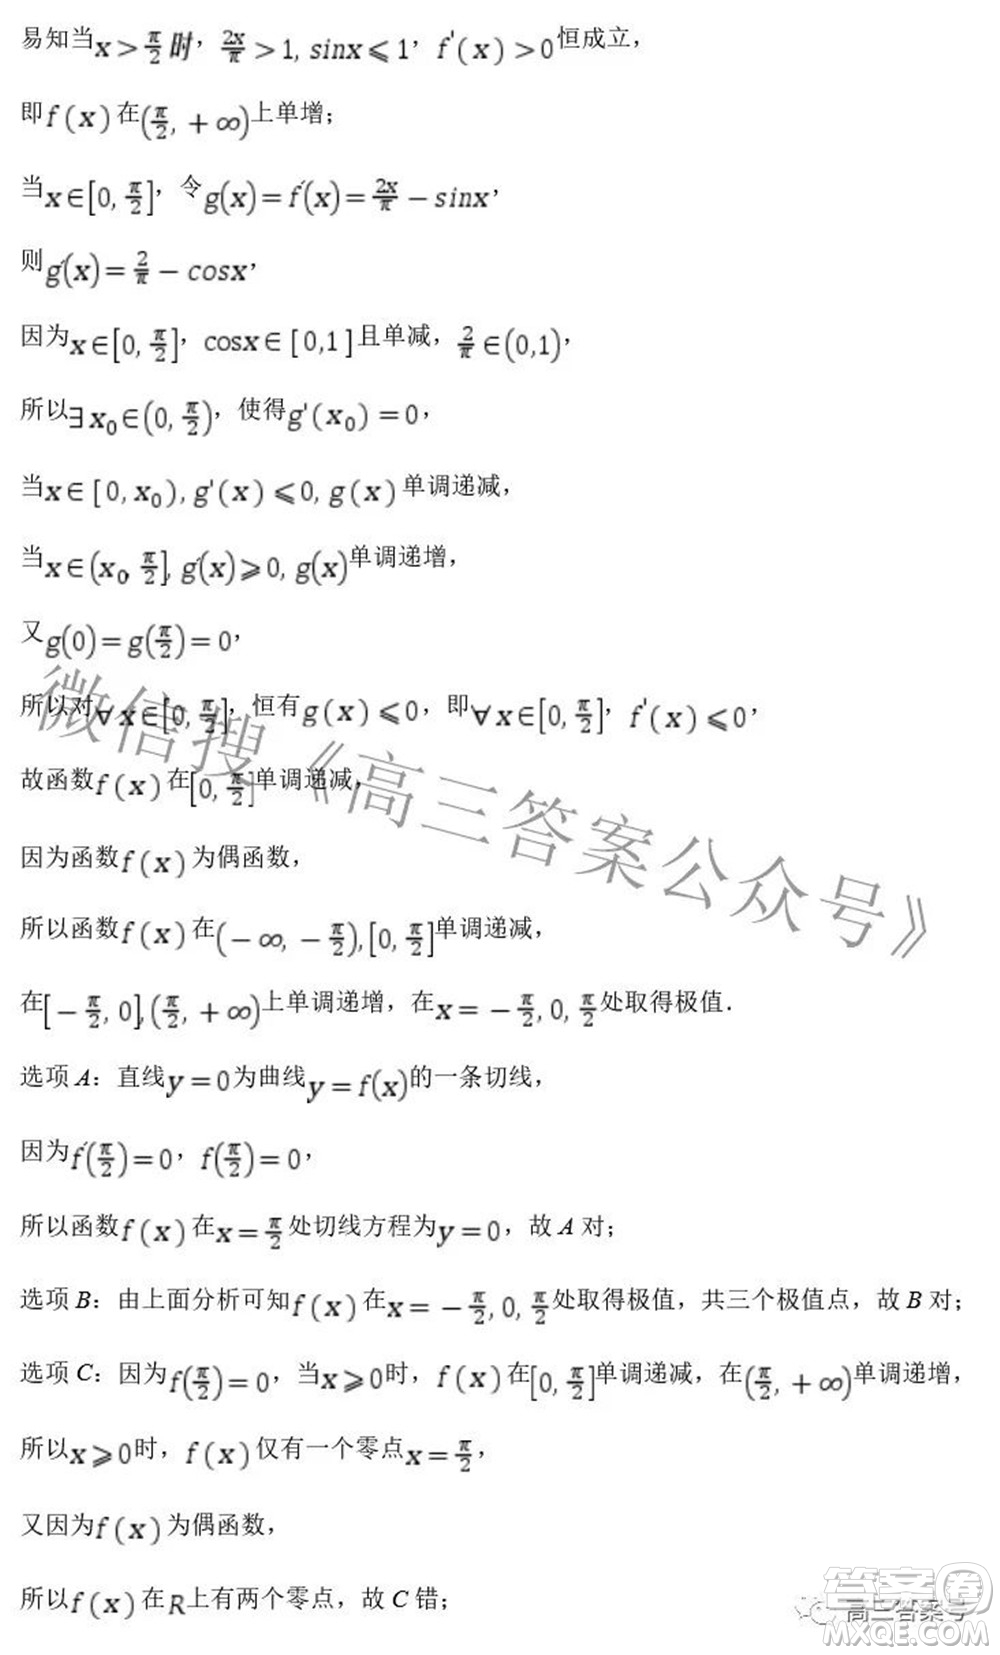 易知当x>π/2时，2x/π>1, sinx⩽1，f'(x)>0恒成立，
即f(x)在(π/2, +∞)上单增；
当x∈[0, π/2]，令g(x)=f'(x)=2x/π−sinx，
则g'(x)=2/π−cosx，
因为x∈[0, π/2]，cosx∈[0,1]且单减，2/π∈(0,1)，
所以∃x₀∈(0, π/2)，使得g'(x₀)=0，
当x∈[0, x₀), g'(x)⩽0, g(x)单调递减，
当x∈(x₀, π/2], g'(x)⩾0, g(x)单调递增，
又g(0)=g(π/2)=0，
所以对∀x∈[0, π/2]，恒有g(x)⩽0，即∀x∈[0, π/2]，f'(x)⩽0，
故函数f(x)在[0, π/2]单调递减，
因为函数f(x)为偶函数，
所以函数f(x)在(−∞, −π/2),[0, π/2]单调递减，
在[−π/2, 0],(π/2, +∞)上单调递增，在x=−π/2, 0, π/2处取得极值．
选项A：直线y=0为曲线y=f(x)的一条切线，
因为f'(π/2)=0，f(π/2)=0，
所以函数f(x)在x=π/2处切线方程为y=0，故A对；
选项B：由上面分析可知f(x)在x=−π/2, 0, π/2处取得极值，共三个极值点，故B对；
选项C：因为f(π/2)=0，当x⩾0时，f(x)在[0, π/2]单调递减，在(π/2, +∞)单调递增，
所以x⩾0时，f(x)仅有一个零点x=π/2，
又因为f(x)为偶函数，
所以f(x)在R上有两个零点，故C错；
微信搜《高三答案公众号》
高三答案号
答案卷
MXQE.COM